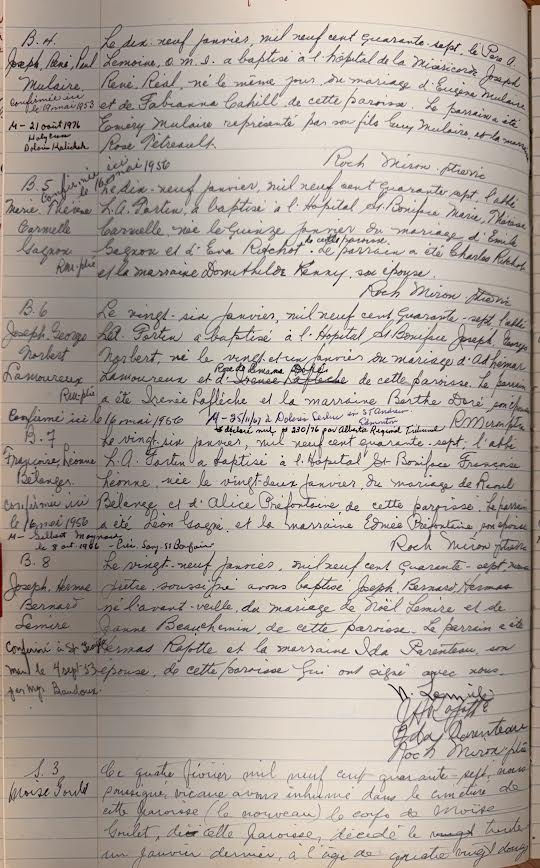 B. 4.
Joseph, René, Paul
Mulaire
Confirmé ici
le 19 mai 1953
M - 21 août 1976
Le dix-neuf janvier, mil neuf cent quarante-sept, le Père A.
Lemoine, o.m.i. a baptisé à l'hôpital de la Miséricorde Joseph
René, Réal, né le même jour, du mariage d'Eugène Mulaire
et de Fabianna Cahill de cette paroisse. Le parrain a été
Eméry Mulaire représenté par son fils Guy Mulaire et la marraine
Rose Tétreault.
Roch Miron ptre vic
B. 5
Confirmée ici
le 16 mai 1956
Marie Thérèse
Carmelle
Gagnon
R.M. ptre
Le dix-neuf janvier, mil neuf cent quarante-sept, l'abbé
L.A. Fortin, a baptisé à l'Hopital St Boniface Marie, Thérèse
Carmelle, née le quinze janvier du mariage d'Emile
Gagnon et d'Eva Rochot de cette paroisse. Le parrain a été Charles Rochot
et la marraine Domithilde Kenny, son épouse.
Roch Miron ptre vic
B. 6
Joseph George
Norbert
Lamoureux
R.M. ptre
Confirmé ici le 16 mai 1956
Le vingt-six janvier, mil neuf cent quarante-sept, l'abbé
L.A. Fortin a baptisé à l'Hopital St Boniface Joseph, Georges
Norbert né le vingt et un janvier du mariage d'Adhémar
Lamoureux et d'Irenée Laflèche de cette paroisse. Le parrain
a été Irenée Laflèche et la marraine Berthe Doré son épouse
M - 25/11/67 à
déclaré nul # 230/76 par Alberta Regional Tribunal
R Miron ptre
B. 7
Françoise, Léonne
Bélanger
Confirmée ici
le 16 mai 1956
M - Gilbert
le 8 oct. 1966
Le vingt-six janvier, mil neuf cent quarante-sept, l'abbé
L.A. Fortin a baptisé à l'Hopital St Boniface Françoise
Léonne, née le vingt-deux janvier, du mariage de Raoul
Bélanger et d'Alice Préfontaine de cette paroisse. Le parrain
a été Léon Gagné et la marraine Edmée Préfontaine son épouse
Roch Miron ptre vic
B. 8
Joseph, Hermas
Bernard
Lemire
Confirmé à St
le 4 sept 53
par Mgr Baudoux
Le vingt-neuf janvier, mil neuf cent quarante-sept nous
prêtre, soussigné avons baptisé Joseph Bernard, Hermas
né l'avant-veille, du mariage de Noël Lemire et de
Jeanne Beauchemin de cette paroisse. Le parrain a été
Hermas Rajotte et la marraine Ida Parenteau, son
épouse, de cette paroisse qui ont signé avec nous.
N. Lemire
H Rajotte
Ida Parenteau
Roch Miron ptre
S. 3
Moise Goulet
Ce quatre février mil neuf cent quarante-sept, nous
soussigné, vicaire avons inhumé dans le cimetière de
cette paroisse (le nouveau) le corps de Moise
Goulet, de cette paroisse, décédé le trente
un janvier dernier, à l'âge de quatre vingt douze